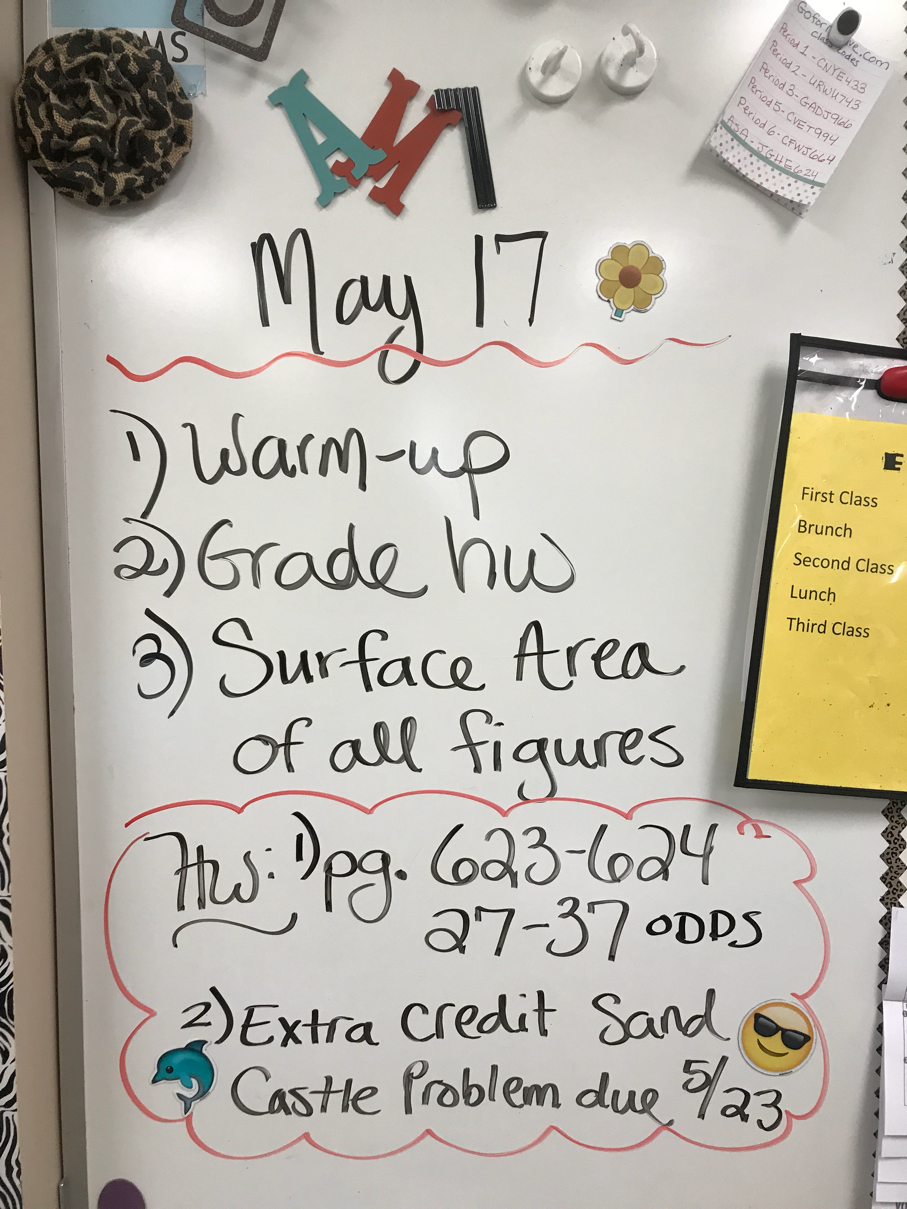 MS
AM
GoFormative.com
class codes
Period 1 - CNYE433
Period 2 - URWH743
Period 3 - GADJ966
Period 5 - CVET994
Period 6 - CFWJ664
ASA - JGHE624
May 17
1) Warm-up
2) Grade hw
3) Surface Area
of all figures
HW: 1) pg. 623-624
27-37 ODDS
2) Extra credit Sand
Castle Problem due 5/23
E
First Class
Brunch
Second Class
Lunch
Third Class